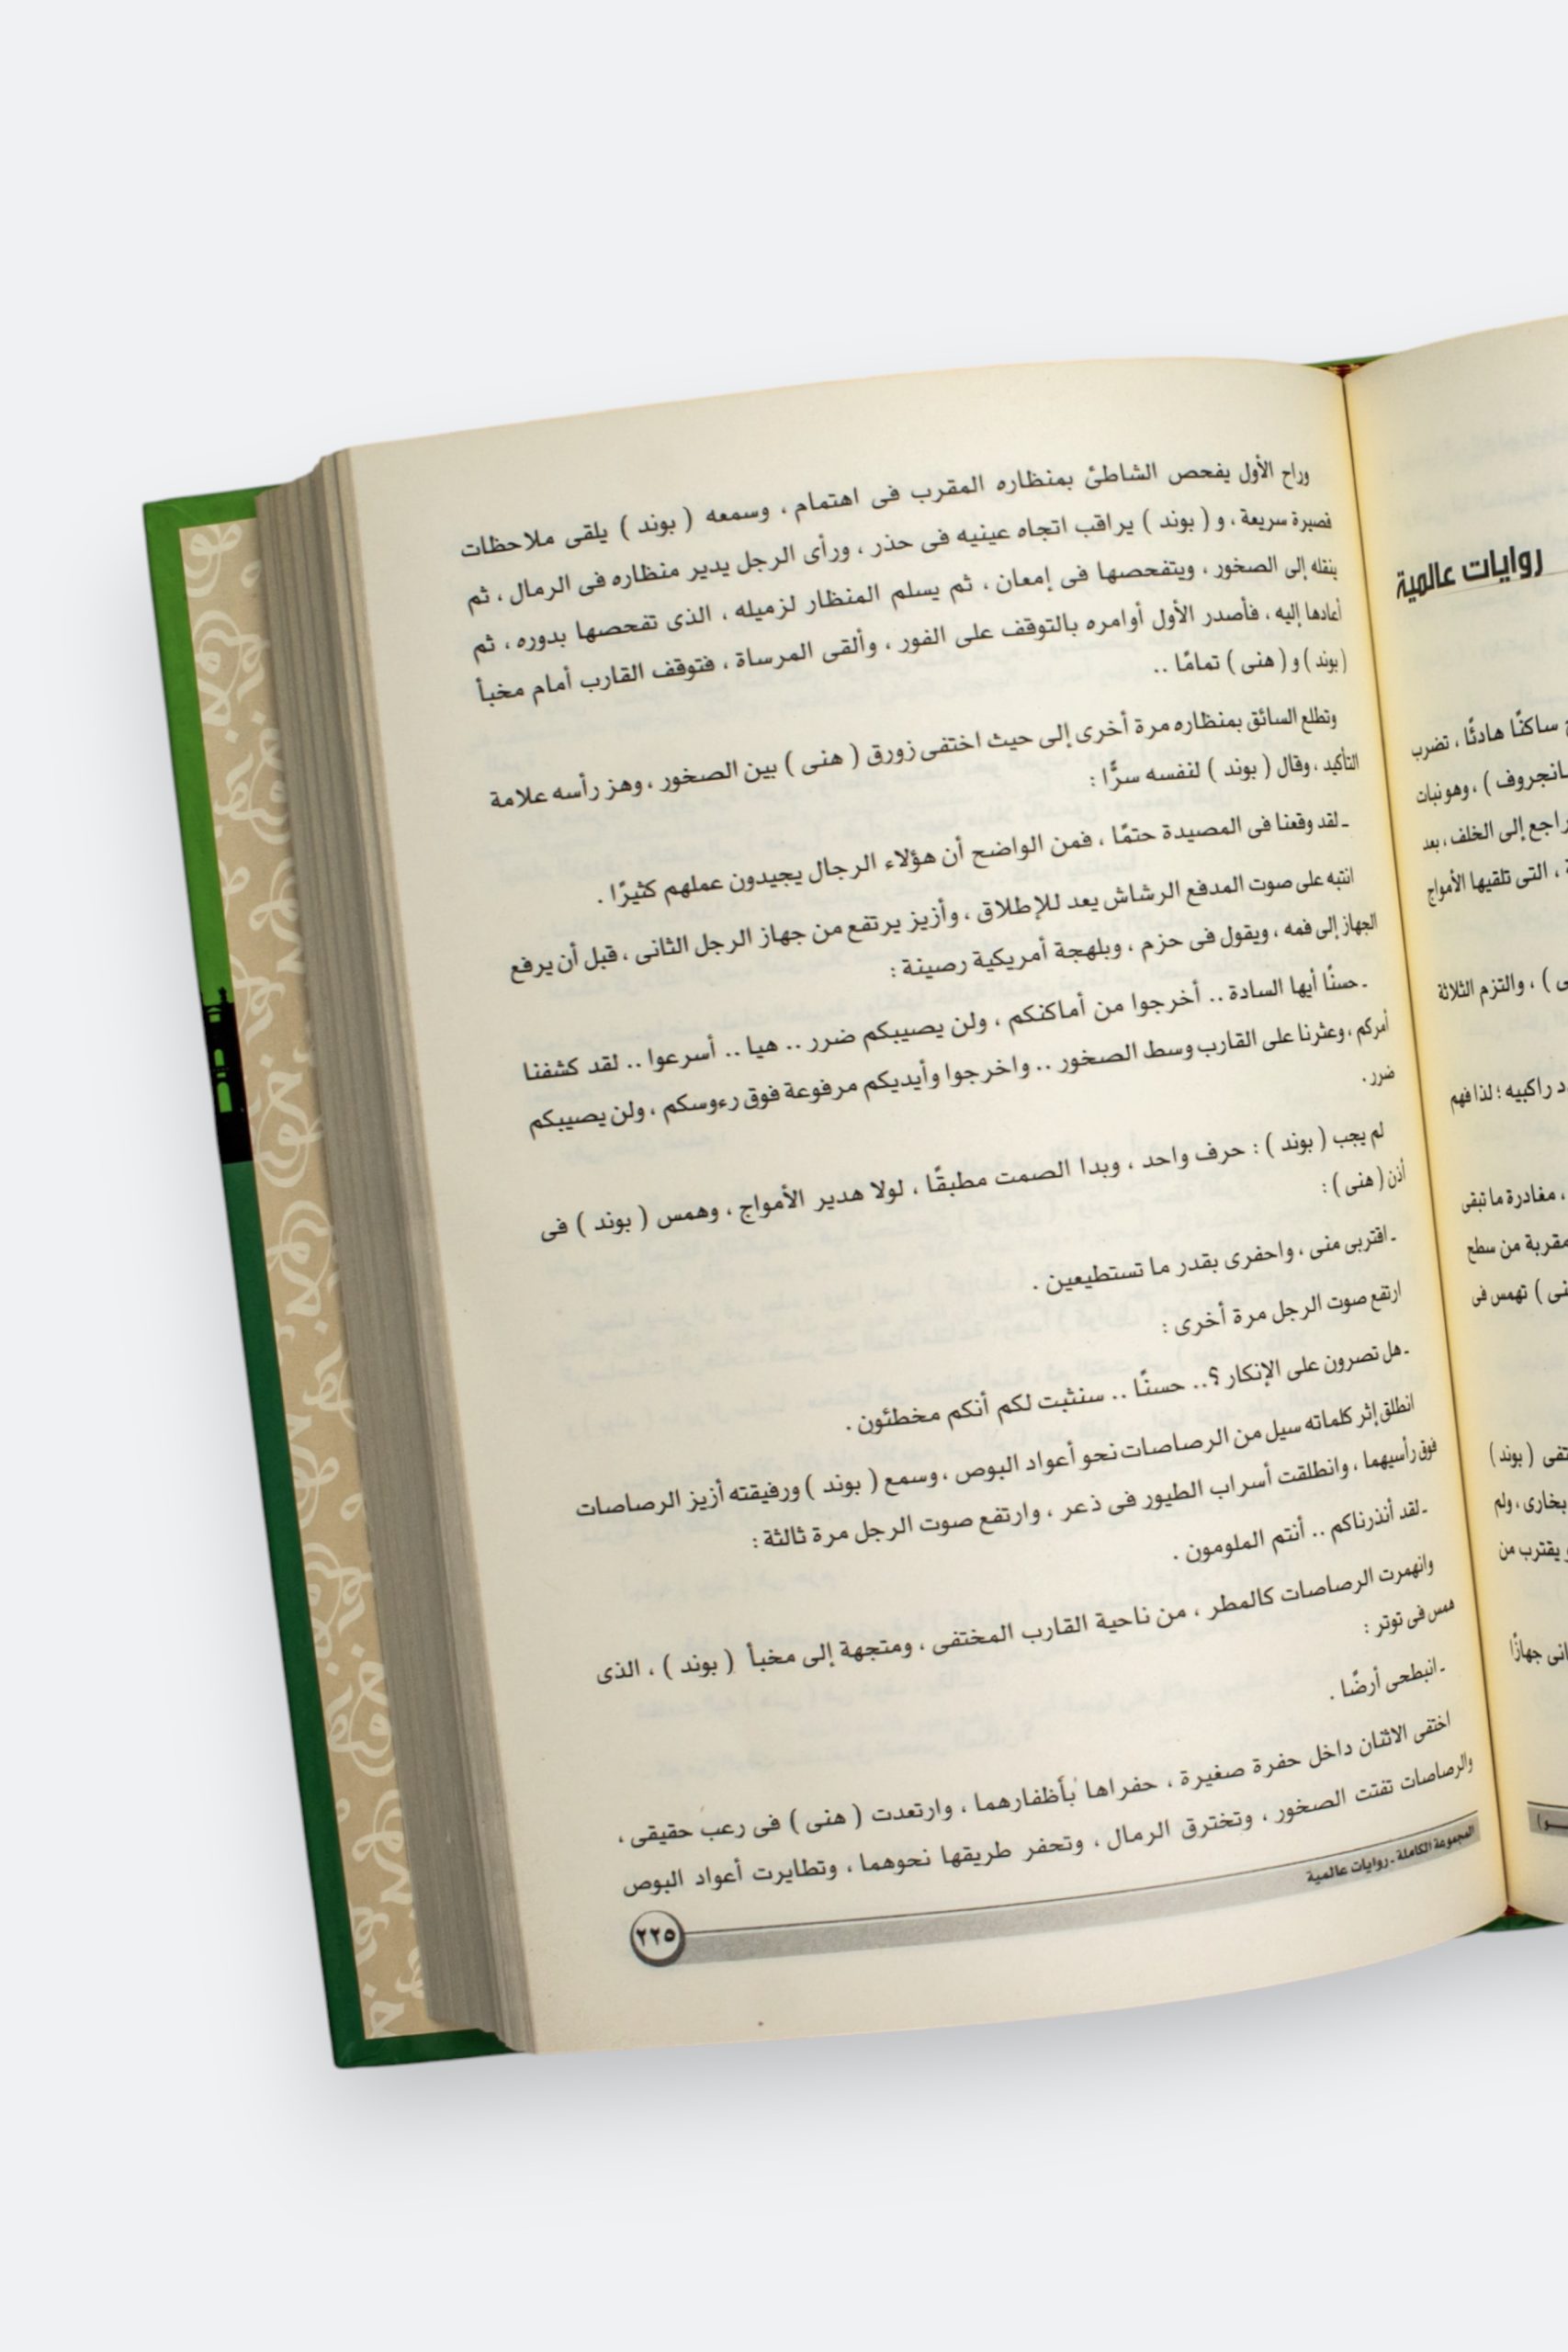 روايات عالمية
ساكنًا هادئًا ، تضرب
انجروف ) ، وهو نبات
راجع إلى الخلف ، بعد
، التى تلقيها الأمواج
) ، والتزم الثلاثة
راكبيه ؛ لذا فهم
، مغادرة ما تبقى
مقربة من سطح
) تهمس فى
( بوند )
بخارى ، ولم
يقترب من
جهازًا
وراح الأول يفحص الشاطئ بمنظاره المقرب فى اهتمام ، وسمعه ( بوند ) يلقى ملاحظات
قصيرة سريعة ، و ( بوند ) يراقب اتجاه عينيه فى حذر ، ورأى الرجل يدير منظاره فى الرمال ، ثم
ينقله إلى الصخور ، ويتفحصها فى إمعان ، ثم يسلم المنظار لزميله ، الذى تفحصها بدوره ، ثم
أعادها إليه ، فأصدر الأول أوامره بالتوقف على الفور ، وألقى المرساة ، فتوقف القارب أمام مخبأ
( بوند ) و ( هنى ) تمامًا ..
وتطلع السائق بمنظاره مرة أخرى إلى حيث اختفى زورق ( هنى ) بين الصخور ، وهز رأسه علامة
التأكيد ، وقال ( بوند ) لنفسه سرًّا :
ـ لقد وقعنا فى المصيدة حتمًا ، فمن الواضح أن هؤلاء الرجال يجيدون عملهم كثيرًا .
انتبه على صوت المدفع الرشاش يعد للإطلاق ، وأزيز يرتفع من جهاز الرجل الثانى ، قبل أن يرفع
الجهاز إلى فمه ، ويقول فى حزم ، وبلهجة أمريكية رصينة :
ـ حسنًا أيها السادة .. أخرجوا من أماكنكم ، ولن يصيبكم ضرر .. هيا .. أسرعوا .. لقد كشفنا
أمركم ، وعثرنا على القارب وسط الصخور .. واخرجوا وأيديكم مرفوعة فوق رءوسكم ، ولن يصيبكم
ضرر .
لم يجب ( بوند ) : حرف واحد ، وبدا الصمت مطبقًا ، لولا هدير الأمواج ، وهمس ( بوند ) فى
أذن ( هنى ) :
ـ اقتربى منى ، واحفرى بقدر ما تستطيعين .
ارتفع صوت الرجل مرة أخرى :
ـ هل تصرون على الإنكار ؟.. حسنًا .. سنثبت لكم أنكم مخطئون .
انطلق إثر كلماته سيل من الرصاصات نحو أعواد البوص ، وسمع ( بوند ) ورفيقته أزيز الرصاصات
فوق رأسيهما ، وانطلقت أسراب الطيور فى ذعر ، وارتفع صوت الرجل مرة ثالثة :
ـ لقد أنذرناكم .. أنتم الملومون .
وانهمرت الرصاصات كالمطر ، من ناحية القارب المختفى ، ومتجهة إلى مخبأ ( بوند ) ، الذى
همس فى توتر :
ـ انبطحى أرضًا .
اختفى الاثنان داخل حفرة صغيرة ، حفراها بأظفارهما ، وارتعدت ( هنى ) فى رعب حقيقى ،
والرصاصات تفتت الصخور ، وتخترق الرمال ، وتحفر طريقها نحوهما ، وتطايرت أعواد البوص
المجموعة الكاملة ـ روايات عالمية
٢٢٥